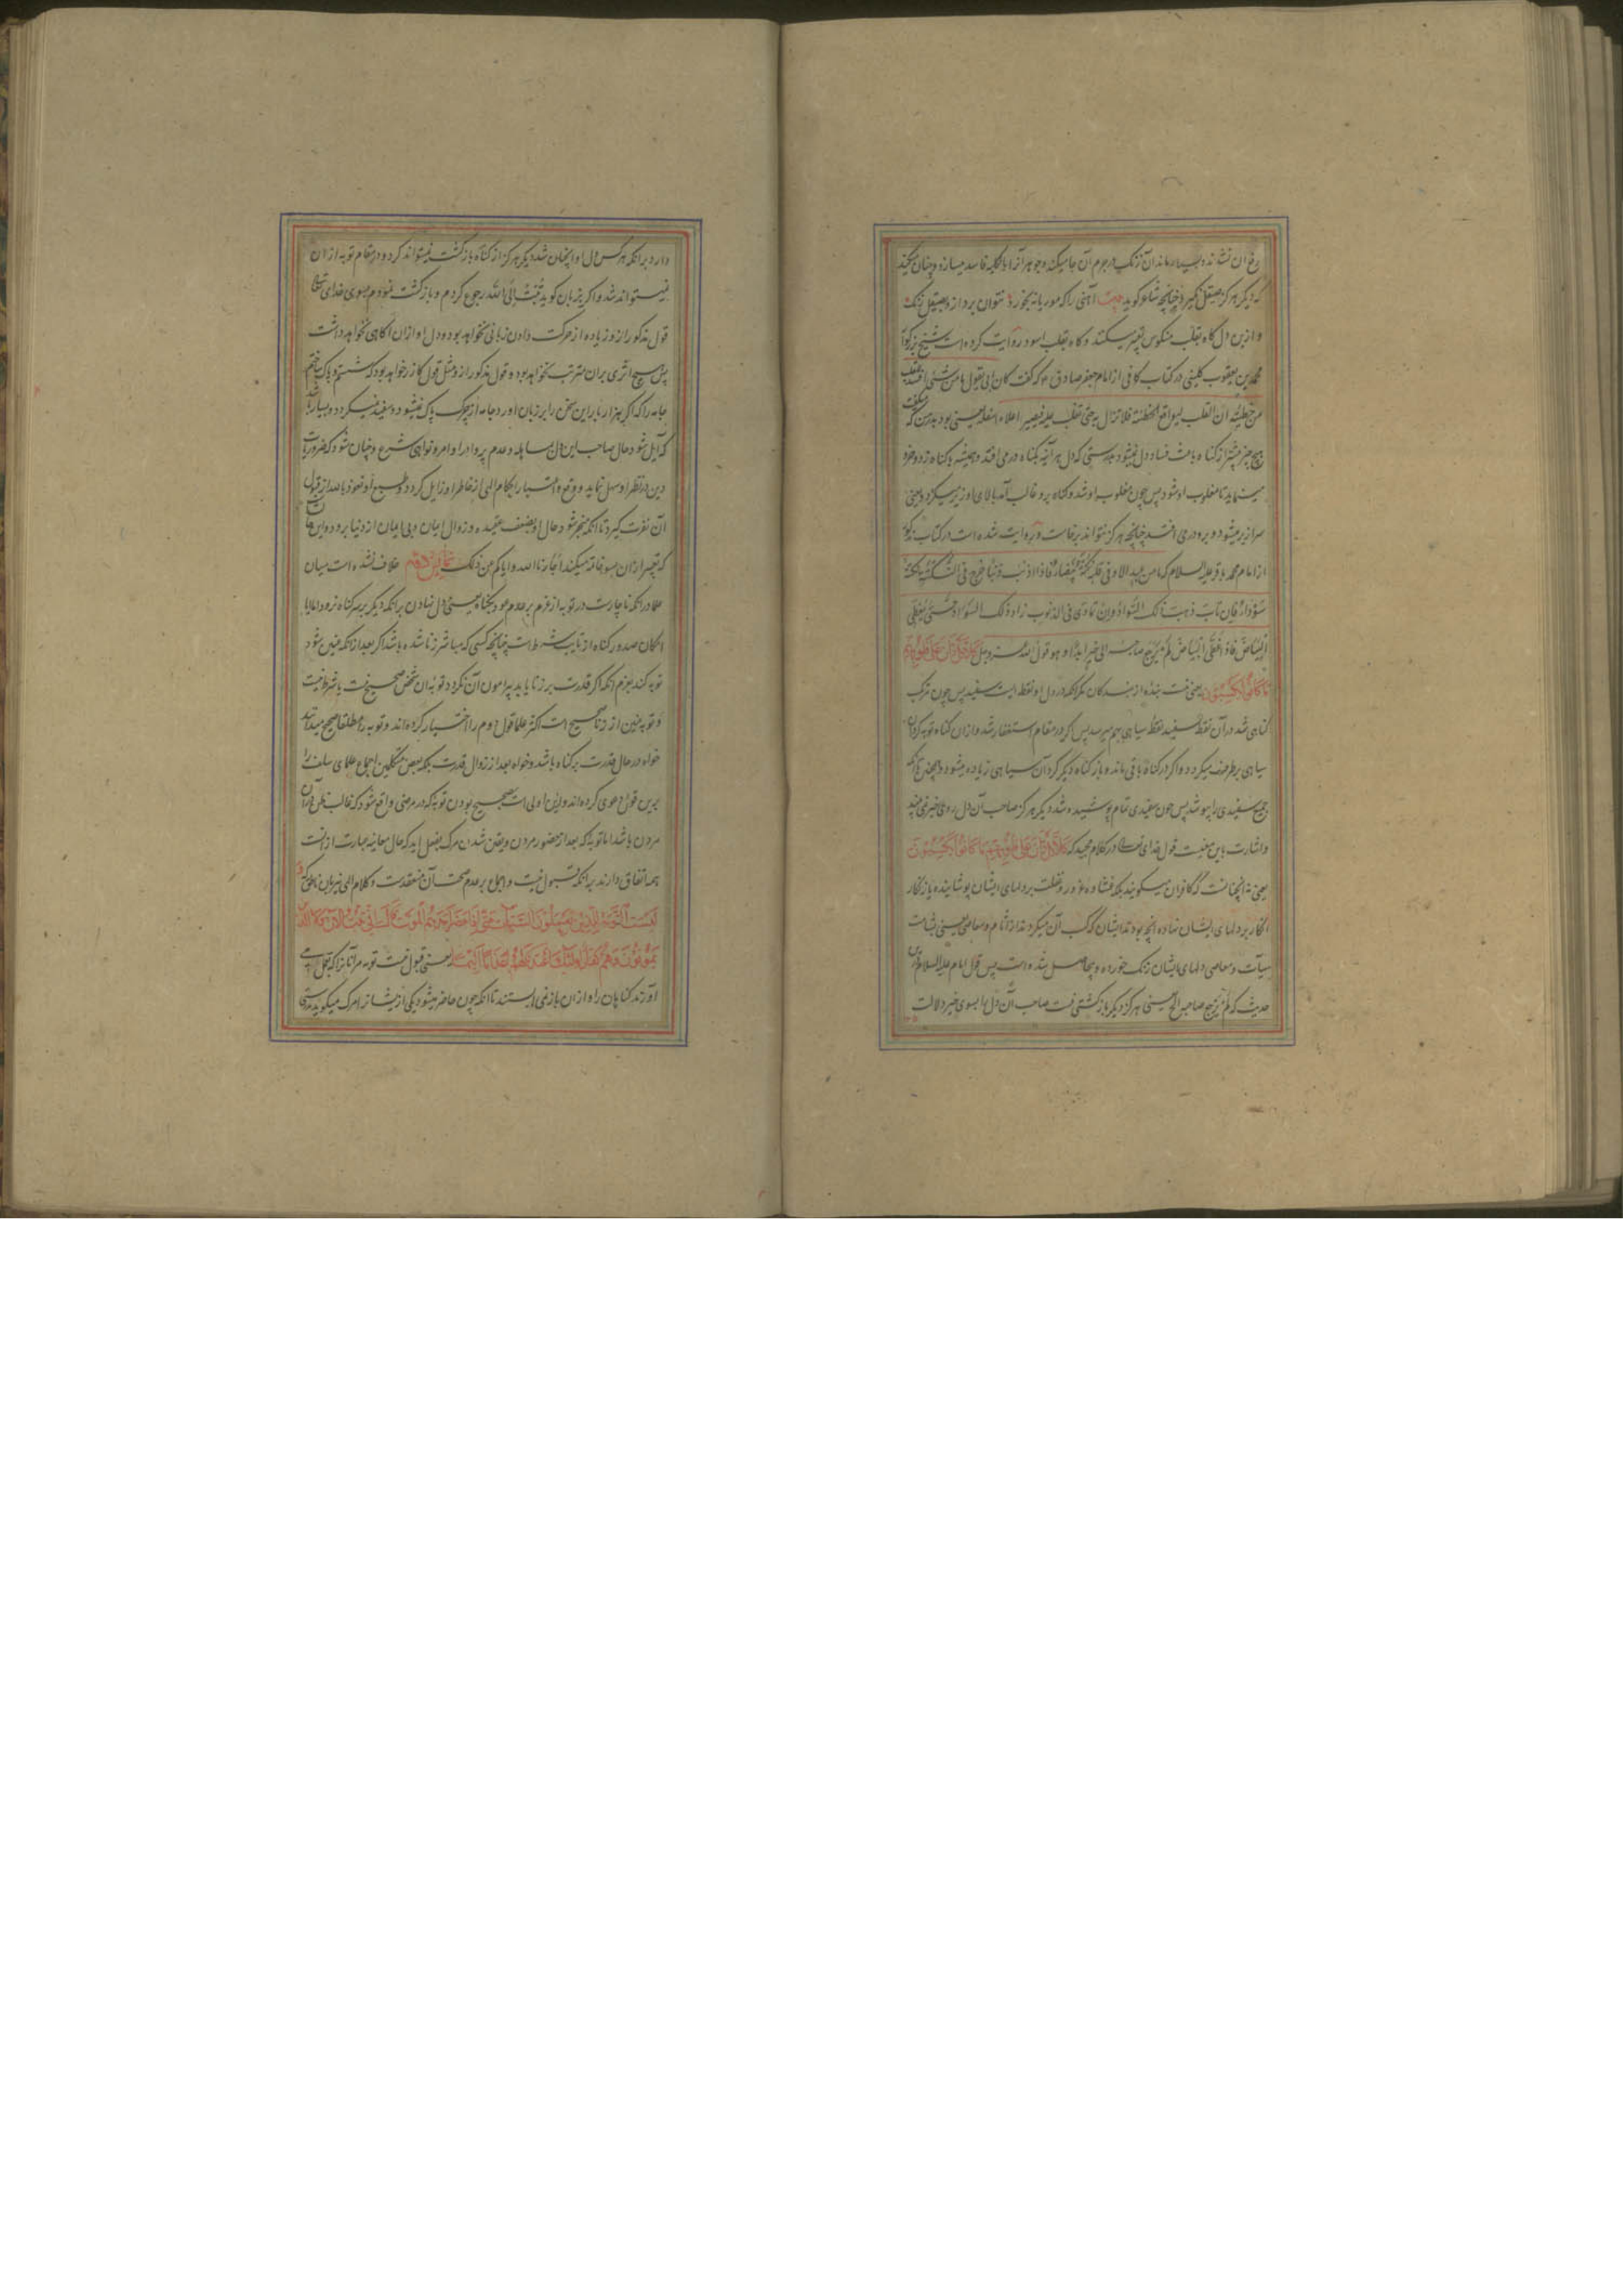 رخ آن نشاند و بسیار ماند آن زنک در جرم آن جا میکند و جوهر آنرا بالکلیه فاسد میسازد و چنان میکند
که دیگر هرگز صیقل نگیرد چنانچه شاعر گوید بیت آهنی را که موریانه بخورد نتوان برد ازو بصیقل زنک
و ازین دل گاه بقلب منکوس تعبیر میکنند و گاه بقلب اسود روایت کرده است شیخ بزرگوار
محمد بن یعقوب کلینی در کتاب کافی از امام جعفر صادق ع که گفت کان ابی یقول ما من شئ افسد للقلب
من خطیئة ان القلب لیواقع الخطیئة فلا تزال به حتی تغلب علیه فیصیر اعلاه اسفله یعنی بود پدر من که میگفت
هیچ چیز بیشتر از گناه باعث فساد دل نمیشود بدرستی که دل هر آینه بگناه در می افتد و همیشه با گناه زد و خورد
مینماید تا مغلوب او شود پس چون مغلوب او شد و گناه برو غالب آمد بالای او زیر میگردد یعنی
سرازیر میشود و برو در می افتد چنانچه هرگز نتواند برخاست و روایت شده است در کتاب مذکور
از امام محمد باقر علیه السلام که ما من عبد الا و فی قلبه نکتة بیضاء فاذا اذنب ذنبا خرج فی النکتة نکتة
سوداء فان تاب ذهب ذلک السواد وان تمادی فی الذنوب زاد ذلک السواد حتی یغطی
البیاض فاذا غطی البیاض لم یرجع صاحبه الی خیر ابدا و هو قول الله عز وجل کلا بل ران علی قلوبهم
ما کانوا یکسبون یعنی نیست بنده از بندگان مگر آنکه در دل او نقطه ایست سفید پس چون مرتکب
گناهی شد در آن نقطه سفید نقطه سیاهی بهم میرسد پس اگر در مقام استغفار شد و ازان گناه توبه کرد آن
سیاهی برطرف میگردد و اگر در گناه باقی ماند و باز گناه دیگر کرد آن سیاهی زیاده میشود و همچنین تا آنکه
جمیع سفیدی را بپوشد پس چون سفیدی تمام پوشیده شد دیگر هرگز صاحب آن دل روی خیر نمی بیند
و اشارت باین معنیست قول خدای تعالی در کلام مجید که کلا بل ران علی قلوبهم ما کانوا یکسبون
یعنی نه آنچنانست که کافران میگویند بلکه غشاوه غرور و غفلت بر دلهای ایشان پوشانیده یا زنگار
انکار بر دلهای ایشان نهاده آنچه بودند ایشان که کسب آن میکردند از آثام و معاصی یعنی بشامت
سیآت و معاصی دلهای ایشان زنک خورده و بیحاصل شده است پس قول امام علیه السلام درین
حدیث که لم یرجع صاحبه الخ یعنی هرگز دیگر بازگشتی نیست صاحب آن دل را بسوی خیر دلالت
دارد بر آنکه هر کس دل او اینچنان شد دیگر هرگز از گناه بازگشت نمیتواند کرد و در مقام توبه از آن
نمیتواند شد و اگر بزبان گوید تبت الی الله رجوع کردم و بازگشت نمودم بسوی خدای تعالی
قول مذکور ازو زیاده از حرکت دادن زبانی نخواهد بود و دل او ازان آگاهی نخواهد داشت
پس هیچ اثری بران مترتب نخواهد بود و قول مذکور ازو مثل قول گازر خواهد بود که شستم و پاک ساختم
جامه را که اگر هزار بار این سخن را بر زبان آورد جامه از چرک پاک نمیشود و سفید نمیگردد و بسیار باشد
که آیل شود حال صاحب این دل بمساهله و عدم پروا در اوامر و نواهی شرع و چنان شود که ضروریات
دین در نظر او سهل نماید و وقع و اعتبار احکام الهی از خاطر او زایل گردد و طبع او نعوذ بالله از قبول
آن نفرت گیرد تا آنکه منجر شود حال او بضعف عقیده و زوال ایمان و بی ایمان از دنیا برود و این همان است
که تعبیر ازان بسوء خاتمه میکنند اجارنا الله و ایاکم من ذلک خلاف نشده است میان
علما در آنکه ناچارست در توبه از عزم بر عدم عود بگناه یعنی دل نهادن بر آنکه دیگر بر سر گناه نرود اما آیا
امکان صدور گناه از تایب شرط است چنانچه کسی که مباشر زنا شده باشد اگر بعد از آنکه عنین شود
توبه کند بعزم آنکه اگر قدرت بر زنا یابد پیرامون آن نگردد توبه آن شخص صحیح نیست یا شرط نیست
و توبه عنین از زنا صحیح است اکثر علما قول دوم را اختیار کرده اند و توبه را مطلقا صحیح میدانند
خواه در حال قدرت بر گناه باشد و خواه بعد از زوال قدرت بلکه بعض متکلمین اجماع علمای سلف را
برین قول دعوی کرده اند و اولی است صحیح بودن توبه که در مرضی واقع شود که غالب ظن در آن
مردن باشد اما توبه که بعد از حضور مردن و یقین شدن مرگ بفعل آید که حال معاینه عبارت ازنست
همه اتفاق دارند بر آنکه قبول نیست و اجماع بر عدم صحت آن منعقدست و کلام الهی نیز باین ناطق که و
لیست التوبة للذین یعملون السیئات حتی اذا حضر احدهم الموت قال انی تبت الآن ولا الذین
یموتون و هم کفار اولئک اعتدنا لهم عذابا الیما یعنی قبول نیست توبه مر آنانرا که بجای می
آورند گناهان را و ازان باز نمی ایستند تا آنکه چون حاضر میشود یکی از ایشانرا مرگ میگوید بدرستی